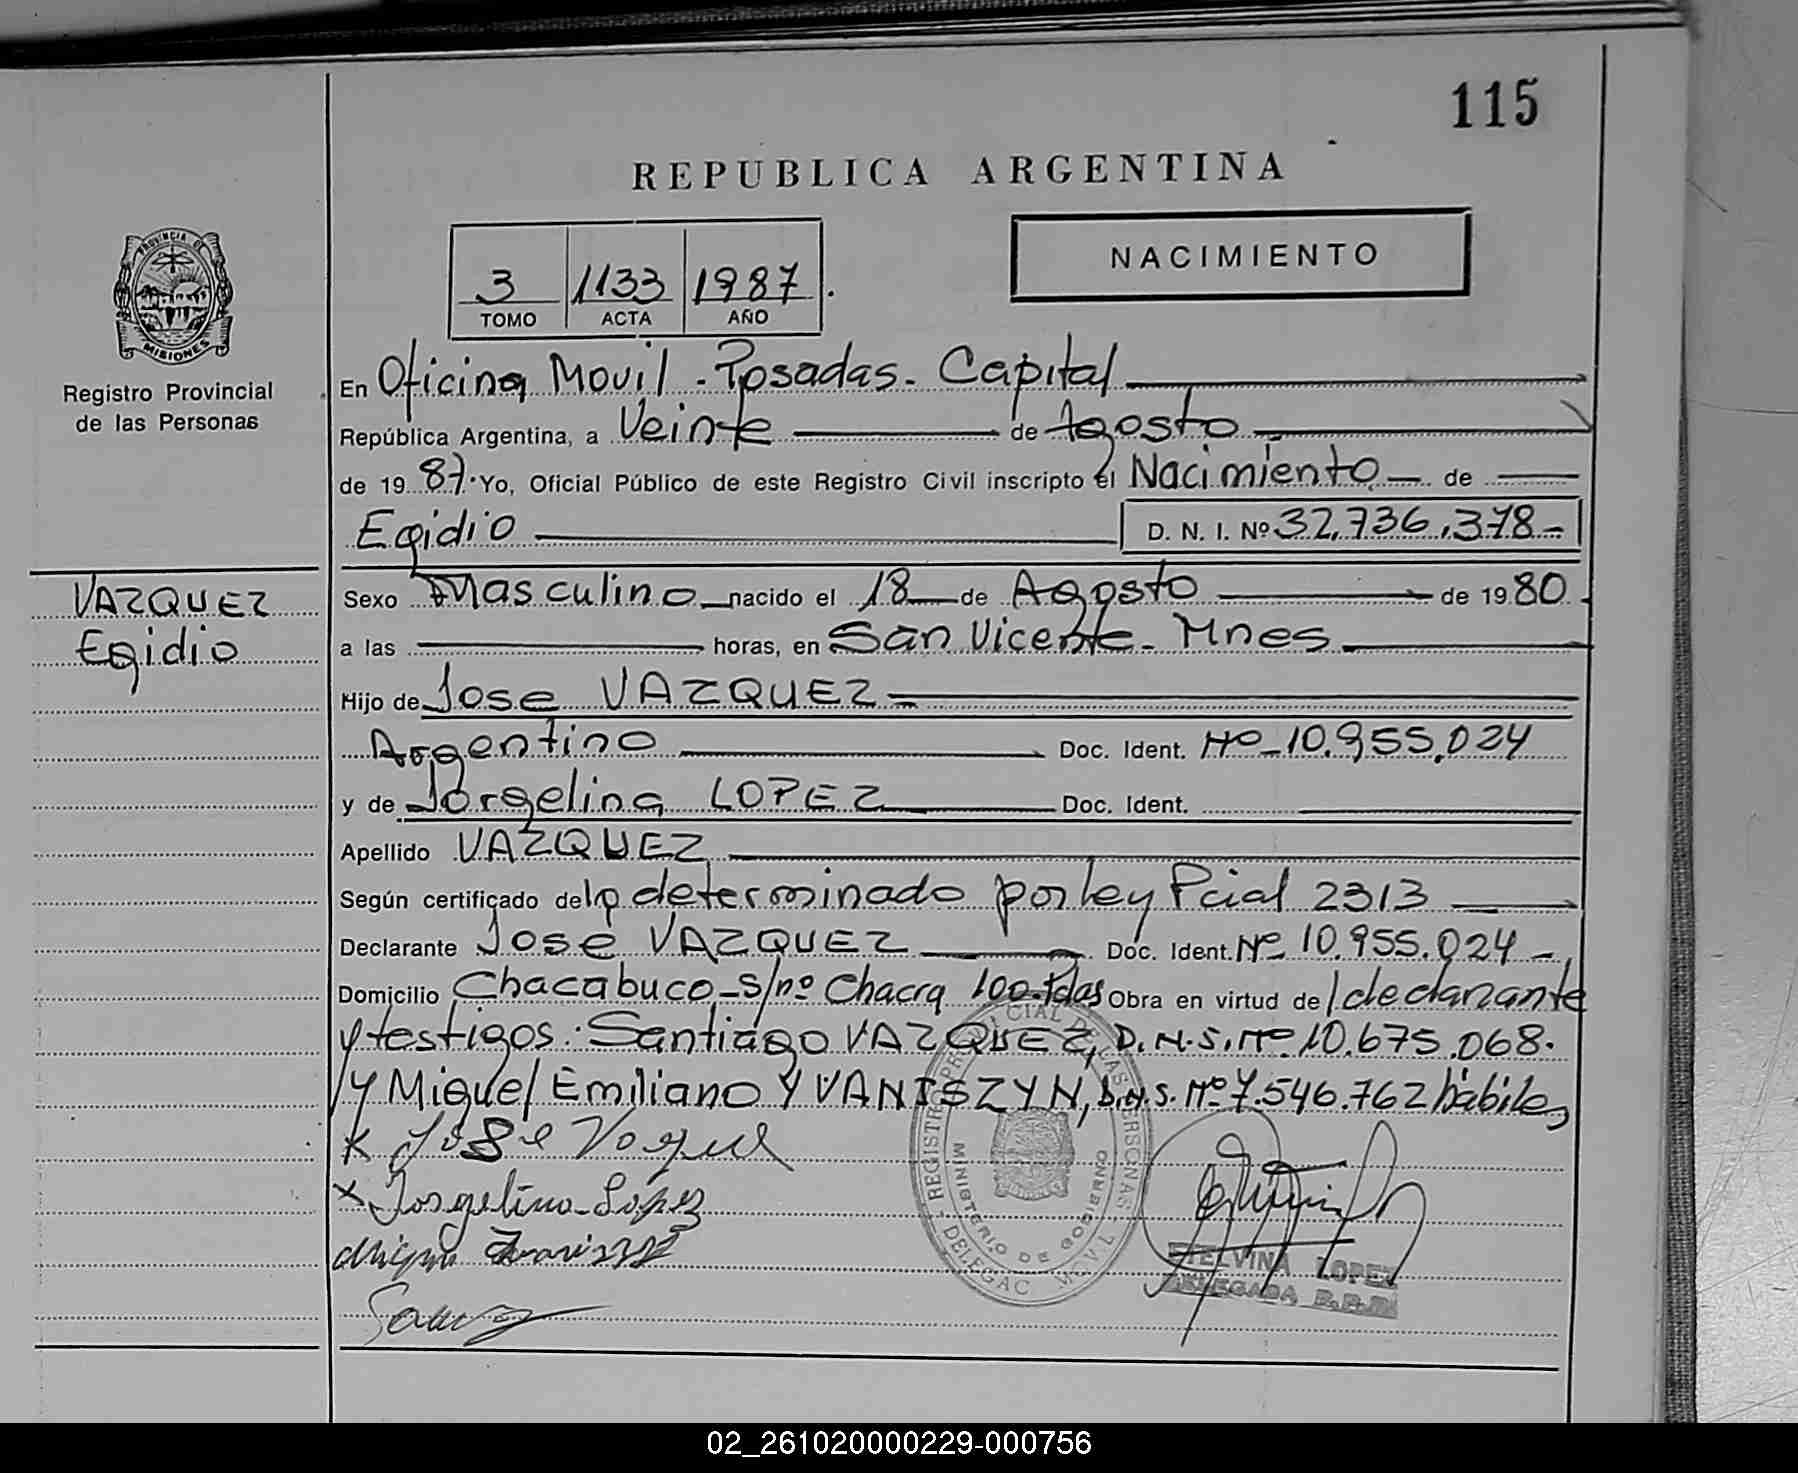 115
REPUBLICA ARGENTINA
PROVINCIA DE
MISIONES
Registro Provincial
de las Personas
3 1133 1987.
TOMO ACTA AÑO
NACIMIENTO
En Oficina Movil - Posadas - Capital
República Argentina, a Veinte de Agosto
de 1987. Yo, Oficial Público de este Registro Civil inscripto el Nacimiento de
Egidio D. N. I. Nº 32.736.378-
VAZQUEZ
Egidio
Sexo Masculino nacido el 18 de Agosto de 1980
a las horas, en San Vicente - Mnes
Hijo de Jose VAZQUEZ
Argentino Doc. Ident. Nº 10.955.024
y de Jorgelina LOPEZ Doc. Ident.
Apellido VAZQUEZ
Según certificado de lo determinado por ley Pcial 2313
Declarante José VAZQUEZ Doc. Ident. Nº 10.955.024-
Domicilio Chacabuco - s/nº Chacra 100 - Pdas Obra en virtud de / declarante
y testigos: Santiago VAZQUEZ, D.N.I. Nº 10.675.068.
/y Miguel Emiliano YVANISZYN, D.N.I. Nº 7.546.762 hábiles
x José Vazquez
x Jorgelina Lopez
REGISTRO PROVINCIAL DE LAS PERSONAS
MINISTERIO DE GOBIERNO
DELEGAC MOVIL
ETELVINA LOPEZ
DELEGADA
02_261020000229-000756